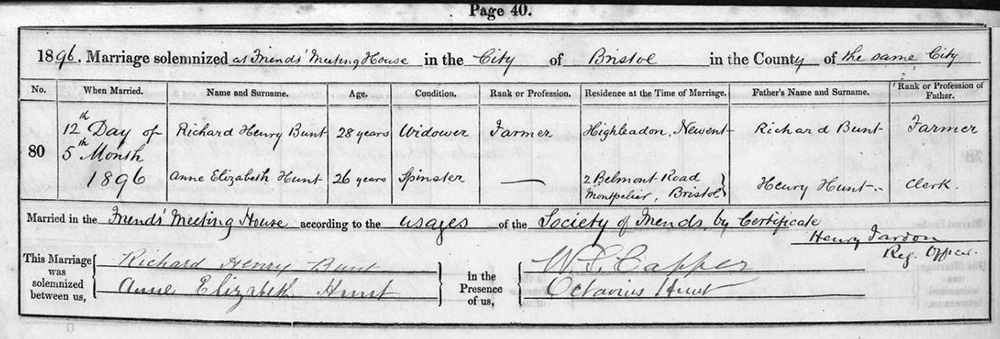 Page 40.
1896. Marriage solemnized at Friends' Meeting House in the City of Bristol in the County of the same City
No. When Married. Name and Surname. Age. Condition. Rank or Profession. Residence at the Time of Marriage. Father's Name and Surname. Rank or Profession of Father.
80 12th Day of 5th Month 1896
Richard Henry Bunt 28 years Widower Farmer Highleadon, Newent Richard Bunt Farmer
Anne Elizabeth Hunt 26 years Spinster — 2 Belmont Road Montpelier, Bristol Henry Hunt Clerk.
Married in the Friends' Meeting House according to the usages of the Society of Friends, by Certificate
Henry Tardon
Reg. Officer.
This Marriage was solemnized between us, Richard Henry Bunt
Anne Elizabeth Hunt
in the Presence of us, W. S. Capper
Octavius Hunt